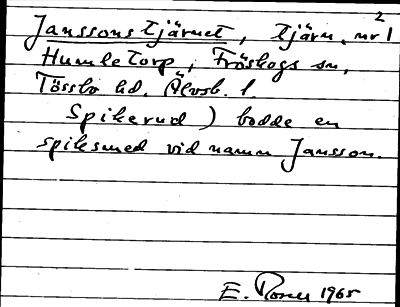 2
Janssonstjärnet, tjärn, nr 1
Humletorp, Fröskogs sn,
Tössbo hd. Älvsb. l.
Spikerud) bodde en
spiksmed vid namn Jansson.
E. 1965